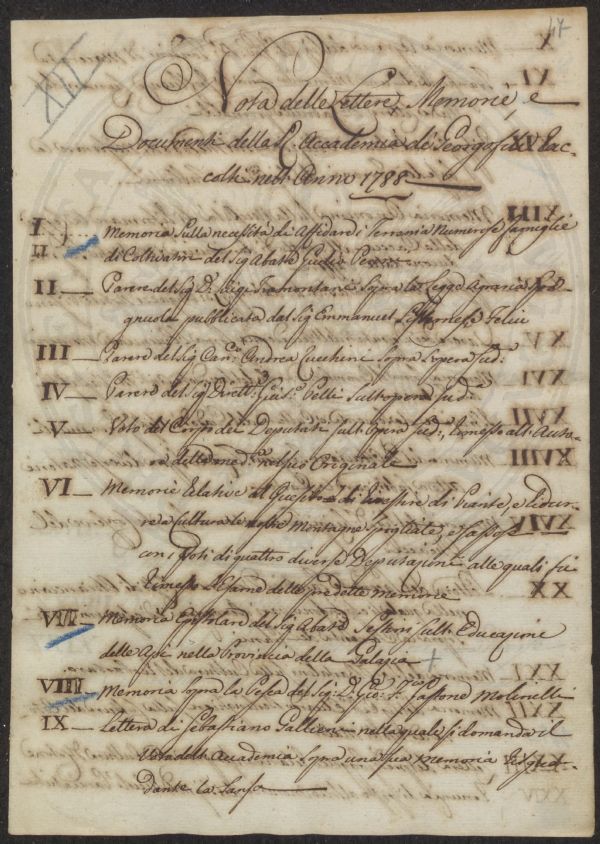 47
XII
Nota delle Lettere, Memorie, e
Documenti della R. Accademia di Georgofili Rac-
colte nell'Anno 1788
I Memoria sulla necessità di Affidare i Terreni a Numerose famiglie
II di Coltivatori del Sig. Abate Giulio
II Parere del Sig. D. Luigi Tramontani sopra la Legge Agraria
pubblicata dal Sig. Emmanuel
III Parere del Sig. Can. Andrea Zucchini sopra l'opera sud.
IV Parere del Sig. Dirett. Gius. Pelli sull'opera sud.
V Voto del Corpo dei Deputati sull'Opera sud., rimesso all'Auto-
re della med. nel suo Originale
VI Memorie relative al Quesito di rivestire di Piante, e ridur-
re a cultura le nostre Montagne spogliate, e sassose
con i Voti di quattro diverse Deputazioni alle quali fu
rimesso l'esame delle predette memorie
VII Memoria Epistolare del Sig. Abate Sestini sull'Educazione
delle Api nella Provincia della Galazia
VIII Memoria sopra la Pesca del Sig. D. Gio. Molinelli
IX Lettera di Sebastiano Gallieni nella quale si domanda il
Voto dell'Accademia sopra una sua memoria risguar-
dante la Sansa